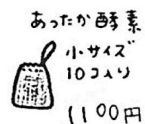 あったか酵素
小サイズ
10コ入り
1100円